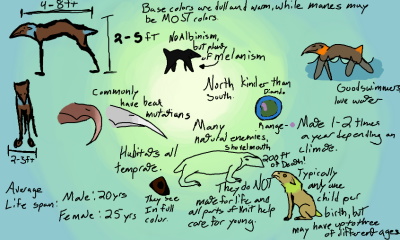 4-8ft
Base colors are dull and warm, while manes may
be MOST colors.
2-5ft
No Albinism,
but plenty
of melanism
Commonly
have beak
mutations
North kinder than
South.
Good swimmers,
love water
Range-
Mate 1-2 times
a year depending on
climate.
Many
natural enemies,
2-3ft
Habitats all
temprate.
200 ft
of Death!
They see
In full
color.
They do NOT
mate for life and
all parts of unit help
care for young.
Typically
only one
child per
birth, but
may have up to three
of different ages
Average
Life span:
Male: 20yrs
Female: 25yrs